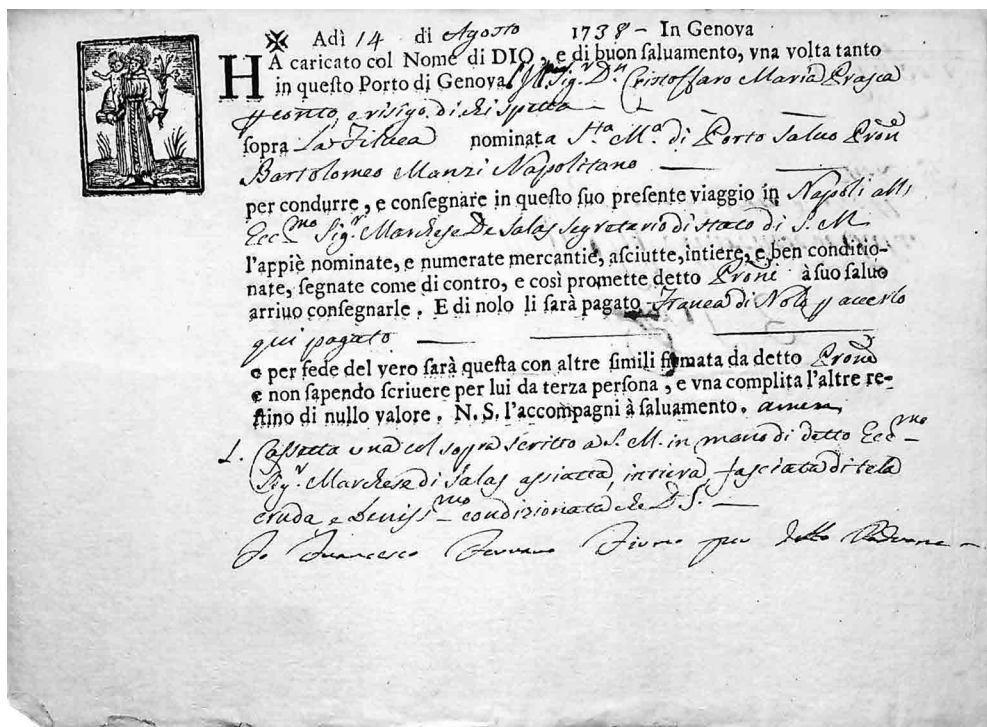 ✠ Adì 14 di Agosto 1738 - In Genova
HA caricato col Nome di DIO, e di buon saluamento, vna volta tanto
in questo Porto di Genova Sigr. Dn. Cristoffaro Maria Prasca
conto, e risigo di chi spetta
sopra La Filuca nominata Sta. Ma. di Porto Saluo Prone
Bartolomeo Manzi Napolitano
per condurre, e consegnare in questo suo presente viaggio in Napoli all'
Eccmo. Sigr. Marchese De Salas Segretario di stato di S. M.
l'appiè nominate, e numerate mercantie, asciutte, intiere, e ben conditio-
nate, segnate come di contro, e così promette detto Prone à suo saluo
arriuo consegnarle. E di nolo li sarà pagato Franca di Nolo p auerlo
qui pagato
e per fede del vero sarà questa con altre simili firmata da detto Prone
e non sapendo scriuere per lui da terza persona, e vna complita l'altre re-
stino di nullo valore. N. S. l'accompagni à saluamento. amen
1. Cassetta una col sopra scritto a S. M. in mano di detto Eccmo.
Sigr. Marchese di Salas assiatta, intiera, fasciata di tela
cruda, e Benissmo. condizionata che D. S.
Io Francesco Firmo per detto Padrone